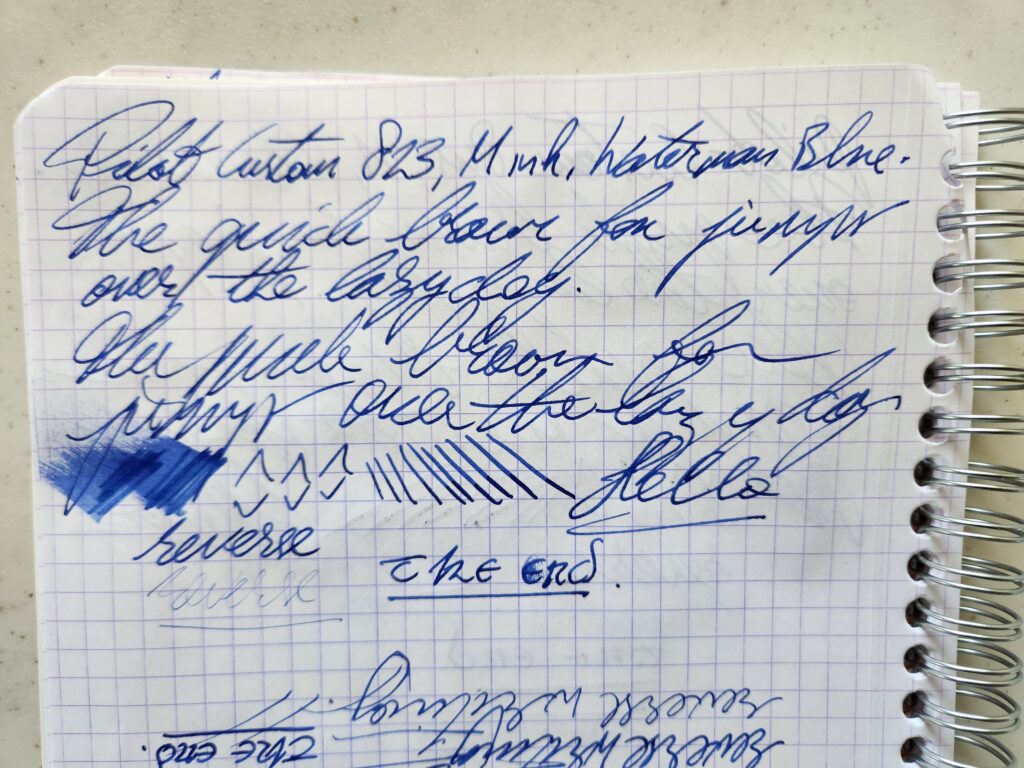 Pilot Custom 823, M ink, Waterman Blue.
The quick brown fox jumps
over the lazy dog.
The quick brown fox
jumps over the lazy dog
Hello
reverse
reverse
the end.
reverse writing
reverse writing
the end.